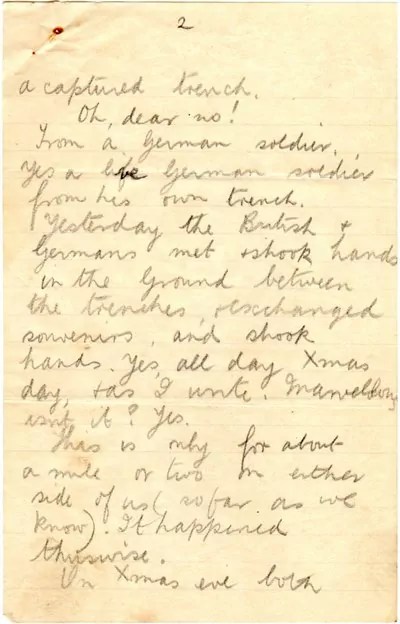 2
a captured trench.
Oh, dear no!
From a German soldier.
Yes a live German soldier
from his own trench.
Yesterday the British &
Germans met & shook hands
in the Ground between
the trenches, & exchanged
souvenirs, and shook
hands. Yes, all day Xmas
day, & as I write. Marvellous
isn't it? Yes.
This is only for about
a mile or two on either
side of us (so far as we
know). It happened
thuswise.
On Xmas eve both